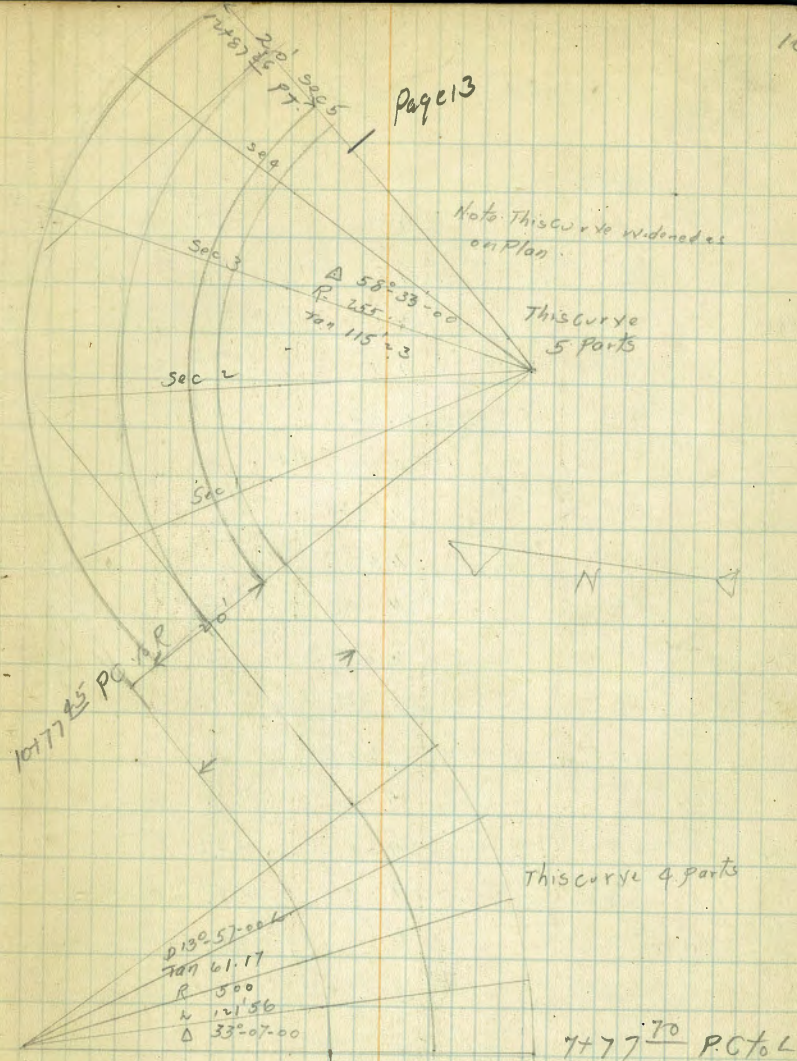 12+87 46 P.T.
20' Sec 5
Page 13
Sec 4
Note. This Curve widened as
on Plan.
Sec 3
Δ 58°-33'-00
R- 255.
Tan 115'23
This Curve
5 Parts
Sec 2
Sec 1
N
20'
10+77 45 P.C. to R
This curve 4 Parts
D 13°-57-00 L
Tan 61.17
R 500
L 121'56
Δ 33°-07-00
7+77 70 P.C to L